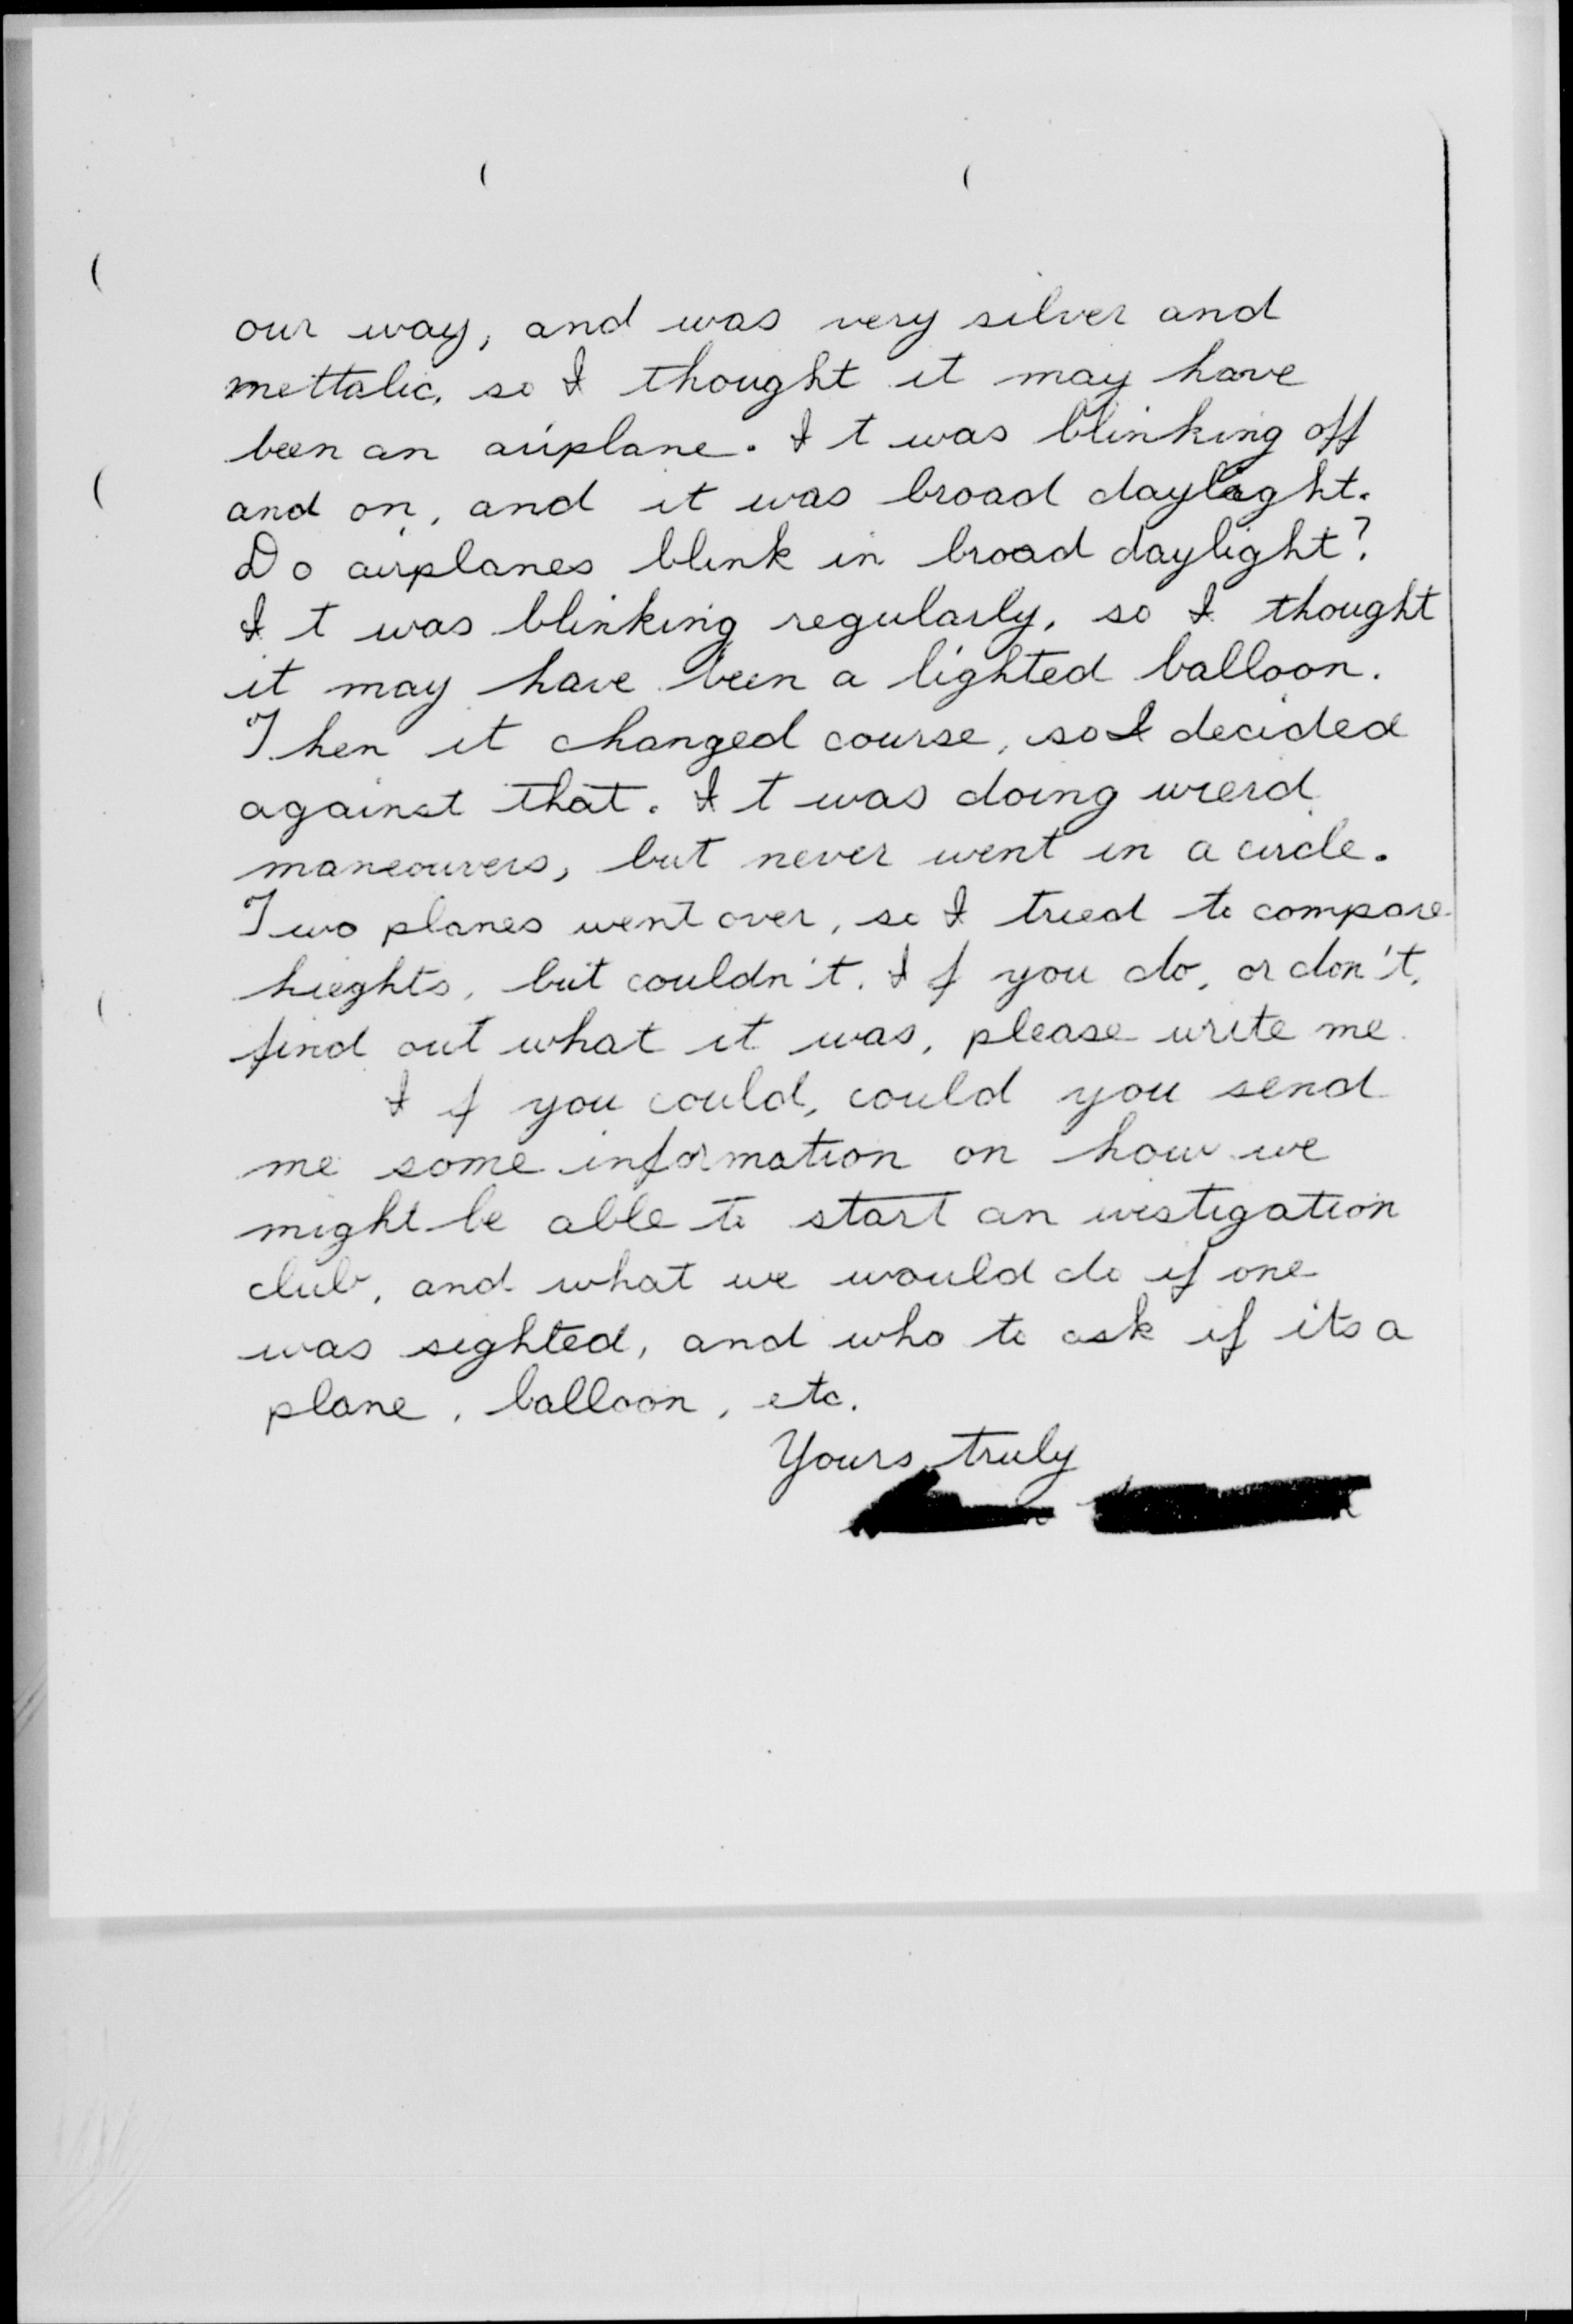 our way, and was very silver and
mettalic, so I thought it may have
been an airplane. It was blinking off
and on, and it was broad daylight.
Do airplanes blink in broad daylight?
It was blinking regularly, so I thought
it may have been a lighted balloon.
Then it changed course, so I decided
against that. It was doing wierd
maneouvers, but never went in a circle.
Two planes went over, so I tried to compare
hieghts, but couldn't. If you do, or don't,
find out what it was, please write me.
If you could, could you send
me some information on how we
might be able to start an ivestigation
club, and what we would do if one
was sighted, and who to ask if its a
plane, balloon, etc.
Yours truly